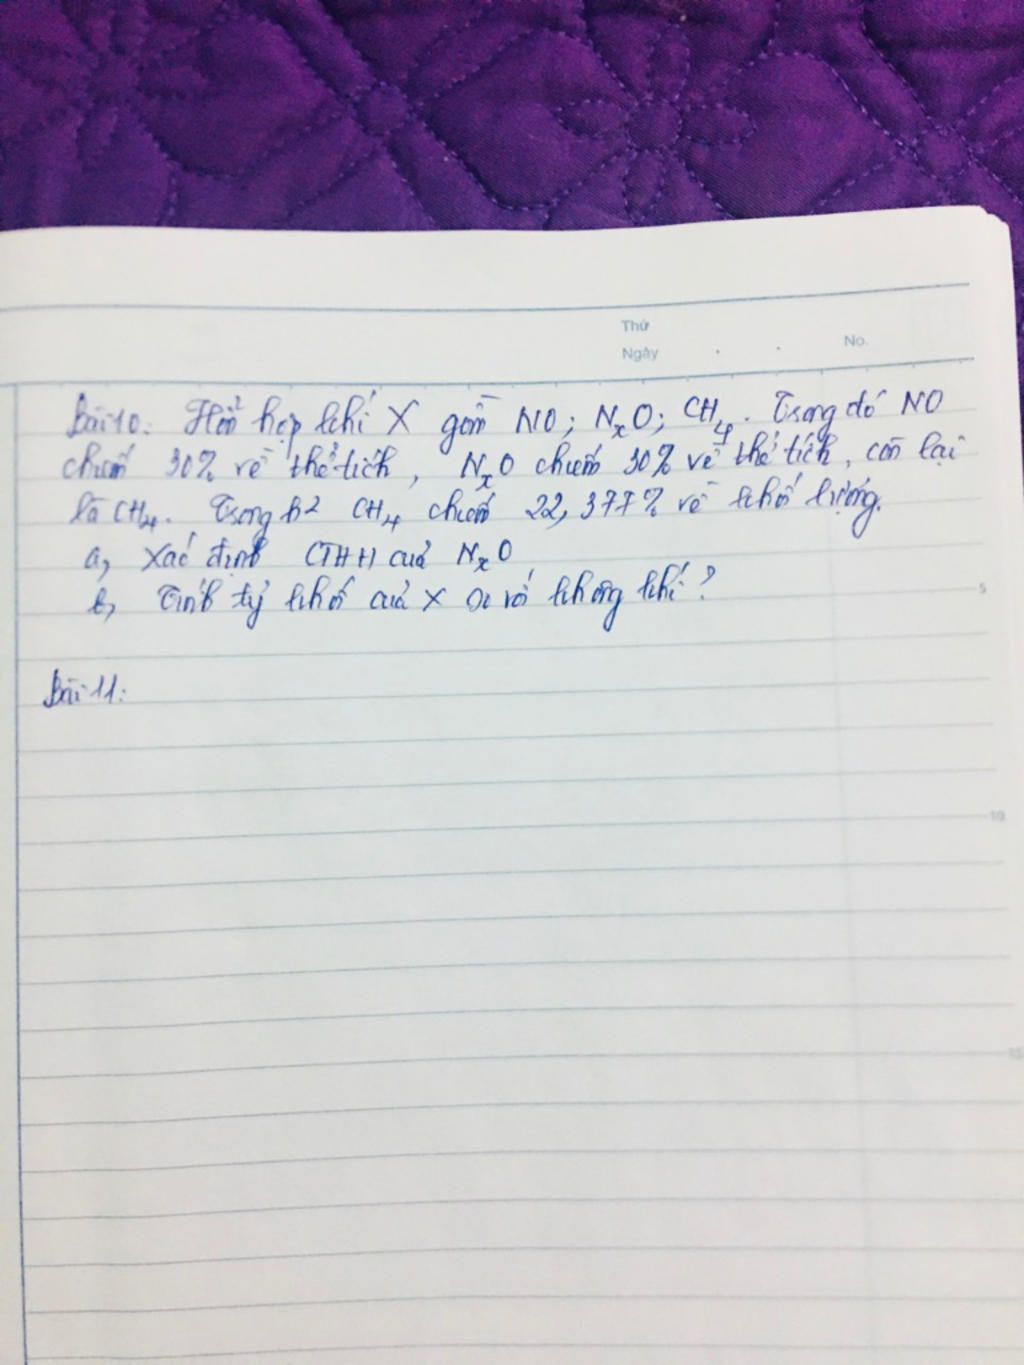 Thứ
Ngày
No.
Bài 10: Hỗn hợp khí X gồm NO; NxO; CH4. Trong đó NO
chiếm 30% về thể tích, NxO chiếm 30% về thể tích, còn lại
là CH4. Trong h² CH4 chiếm 22,377% về khối lượng.
a, Xác định CTHH của NxO
b, Tính tỷ khối của X so với không khí?
5
Bài 11:
10
15